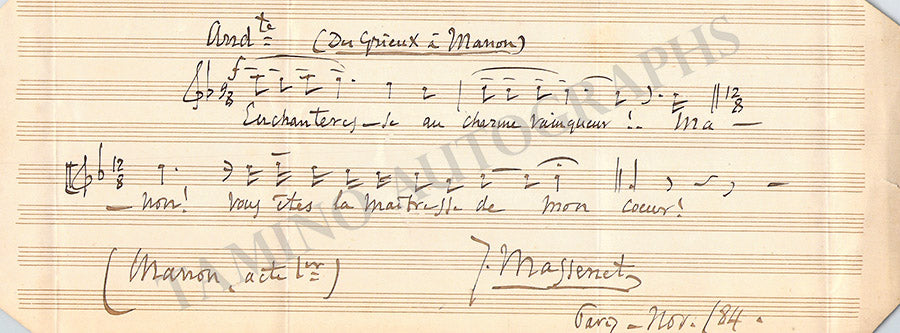 And.te (Des Grieux à Manon)
f
9/8 12/8
Enchanteres_se au charme vainqueur!.. Ma _
12/8
_ non! Vous êtes la maîtresse de mon coeur!
(Manon, acte 1er)
J. Massenet
Paris _ Nov. /84.
TAMINO AUTOGRAPHS